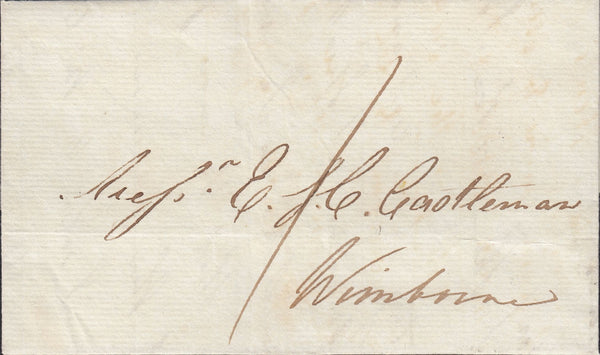 Messrs. E. & C. Castleman
Wimborne